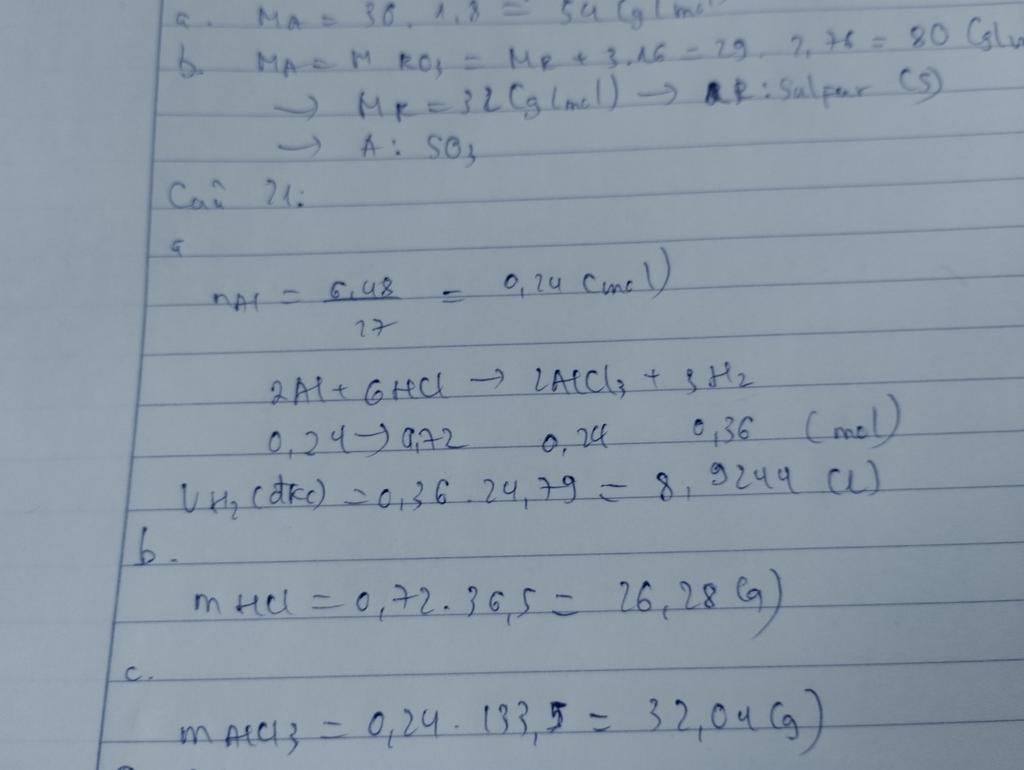 a. MA = 30. 1,8 = 54 (g/mol
b. MA = M RO3 = MR + 3.16 = 29. 2,76 = 80 (g/m
→ MR = 32 (g/mol) → R: Sulfur (S)
→ A: SO3
Câu 21:
a
nAl = 6,48/27 = 0,24 (mol)
2Al + 6HCl → 2AlCl3 + 3H2
0,24 → 0,72 0,24 0,36 (mol)
VH2 (đkc) = 0,36. 24,79 = 8,9244 (l)
b.
mHCl = 0,72. 36,5 = 26,28 (g)
c.
mAlCl3 = 0,24. 133,5 = 32,04 (g)